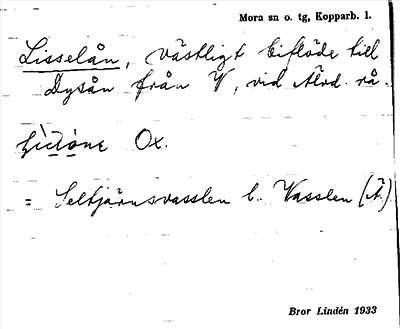 Mora sn o. tg, Kopparb. l.
Lisselån, västligt biflöde till
Dysån från V, vid Älvd. rå.
Ox.
= Seltjärnsvasslen l. Vasslen (Ä.)
Bror Lindén 1933